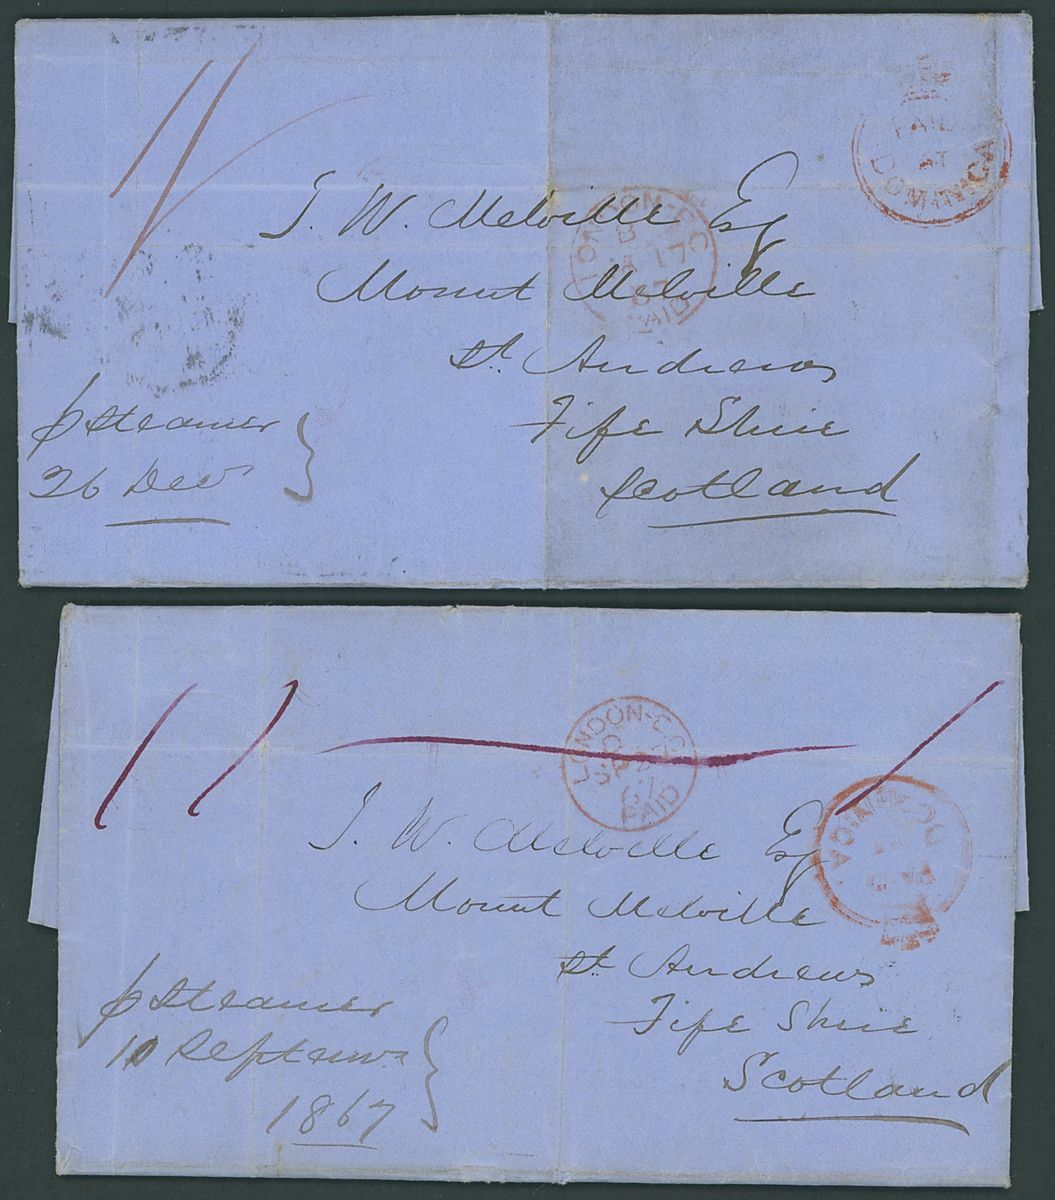 PAID
AT
DOMINICA
J. W. Melville Esq
LONDON-E.C
B
17
67
PAID
Mount Melville
St. Andrews
Fife Shire
Scotland
p Steamer
26 Dec
LONDON-E.C
D
SP 27
67
PAID
J. W. Melville Esq
DOMINICA
Mount Melville
St. Andrews
Fife Shire
Scotland
p Steamer
10 September
1867